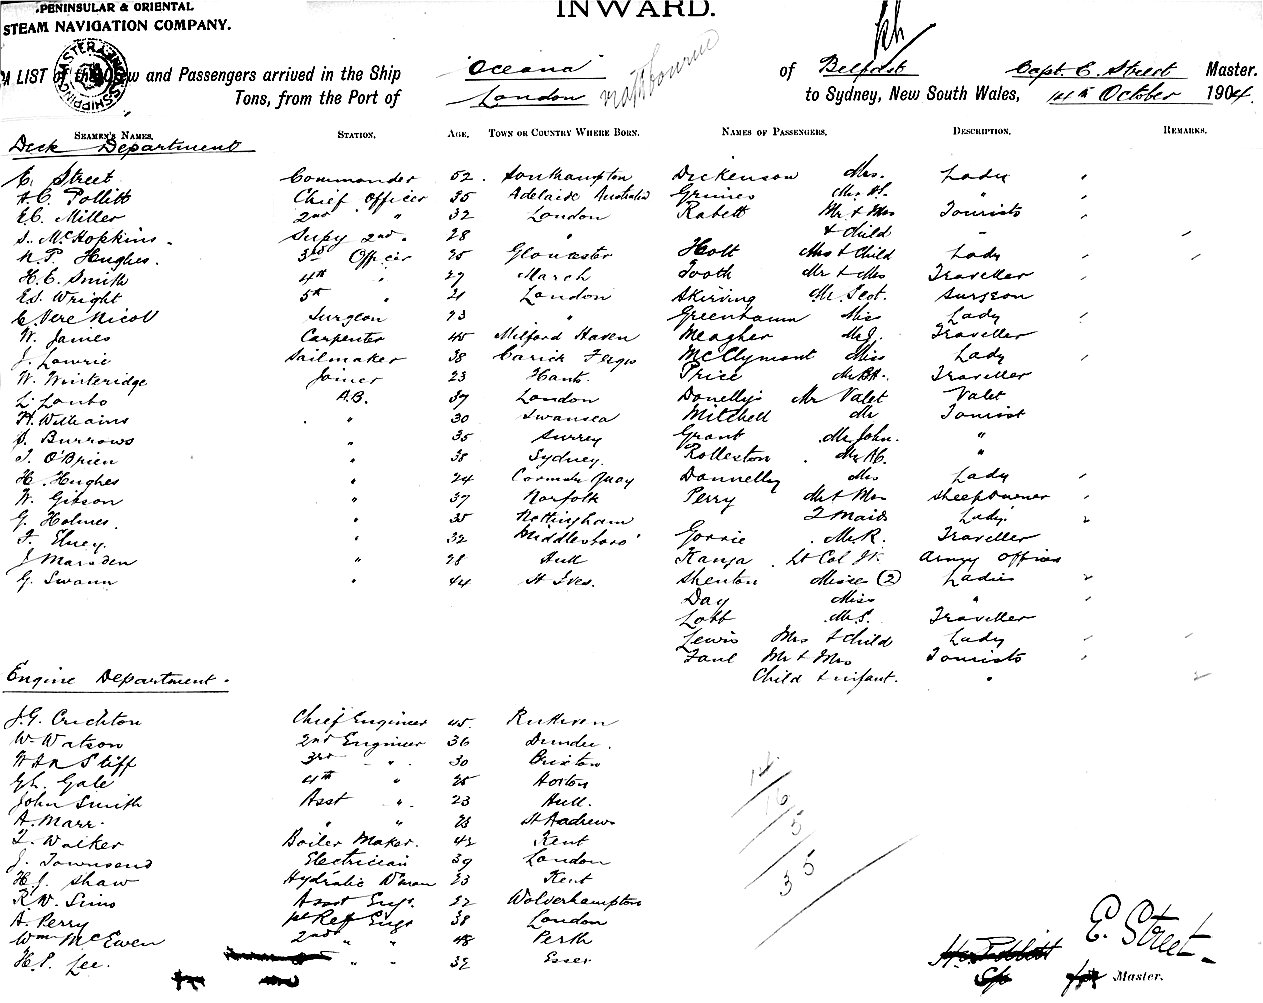 PENINSULAR & ORIENTAL
STEAM NAVIGATION COMPANY.
INWARD.
A LIST of the Crew and Passengers arrived in the Ship "Oceana" of Belfast Capt. E. Street Master.
Tons, from the Port of London to Sydney, New South Wales, 14th October 1904.
SEAMEN'S NAMES. STATION. AGE. TOWN OR COUNTRY WHERE BORN. NAMES OF PASSENGERS. DESCRIPTION. REMARKS.
Deck Department
E. Street Commander 52 Southampton Dickenson Mrs. Lady
H.C. Pollitt Chief Officer 35 Adelaide Australia Mrs. "
E.C. Miller 2nd " 32 London Rabett Mr & Mrs Tourists
S. McHopkins Supy 2nd " 28 " & Child "
N.P. Hughes. 3rd Officer 25 Gloucester Holt Mrs & Child Lady
H.E. Smith 4th " 27 March Tooth Mr & Mrs Traveller
E.S. Wright 5th " 21 London Skirving Mr Scot. Surgeon
E. Vere Nicoll Surgeon 23 " Greenham Miss Lady
W. James Carpenter 45 Milford Haven Meagher Mr J. Traveller
J. Lowrie Sailmaker 38 Carick Fergus McClymont Miss Lady
W. Winteridge Joiner 23 Hants. Price Mr Traveller
A.B. 37 London Donelly's Mr Valet Valet
H. Williams " 30 Swansea Mitchell Mr Tourist
S. Burrows " 35 Surrey Grant Mr John. "
T. O'Brien " 38 Sydney. Rolleston Mr "
H. Hughes " 24 Quay Donnelly Mrs Lady
W. Gibson " 37 Norfolk Perry Mr & Mrs Sheepowner
G. Holmes. " 35 Nottingham 2 Maids Lady's
F. " 32 Middlesboro' Gorrie Mr R. Traveller
J Marsden " 28 Hull Lt Col Army Officer
G. Swann " 44 St Ives. Shenton Misses (2) Ladies
Day Miss "
Lott Mr S. Traveller
Lewis Mrs & Child Lady
Faul Mr & Mrs Tourists
Child & infant. "
Engine Department.
J.G. Crichton Chief Engineer 45
W. Watson 2nd Engineer 36 Dundee.
Stiff 3rd " 30 Brixton
Gale 4th " 25 Hoxton
John Smith Asst " 23 Hull.
A. Marr. " " 23 St Andrews
T. Walker Boiler Maker. 42 Kent
J. Townsend Electrician 39 London
H.J. Shaw Hydralic 23 Kent
R.W. Sims Asst Engr. 22 Wolverhampton
A. Perry 1st Ref Engr 38 London
Wm McEwen 2nd " " 48 Perth
H.P. Lee. " " 32 Essex
E. Street
Master.